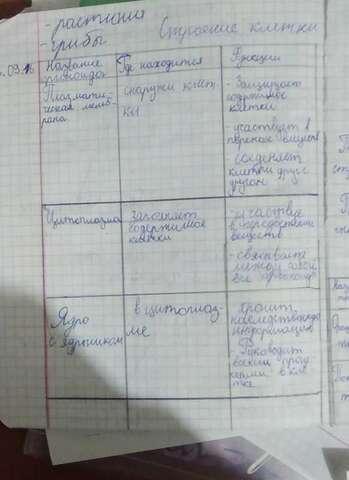 - растения
- грибы
Строение клетки
.09.16
Название
органоида
Где находится
Функции
Плазмати-
ческая мемб-
рана
снаружи клет
ки
- Защищает
содержимое
клетки
- участвует в
переносе веществ
- соединяет
клетки друг с
другом
Цитоплазма
Заполняет
содержимое
клетки
- участвует
веществ
- связывает
между собой
все
Ядро
с ядрышком
в цитоплаз-
ме
- хранит
наследственную
информацию
- Руководит
всеми проц
ессами в кле
тке